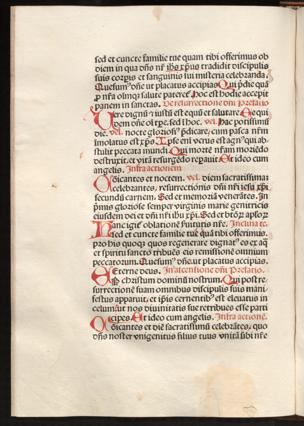 sed et cuncte familie tue quam tibi offerimus ob
diem in qua dñs nr̄ ihs xp̄us tradidit discipulis
suis corpis et sanguinis sui misteria celebranda.
Quesumꝰ dñe ut placatus accipias Qui pdie quã
p nr̄a oīmqꝫ salute pateret. hoc est hodie accepit
panem in sanctas. De resurrectione dñi Prefatio
Vere dignũ et iustũ est equũ et salutare. Te qui
dem oñi tpe. sed ī hoc. vel. hac potissimũ
die. vel. nocte gloriosiꝰ p̄dicare, cum pasca nr̄m
imolatus est xp̄s. Ipse enī verus est agnꝰ qui ab
stulit peccata mundi. Qui mortē nr̄am moriēdo
destruxit, et vitā resurgēdo repauit. Et ideo cum
angelis. Infra actionem
Cōicantes et noctem. vel. diem sacratissimã
celebrantes, resurrectionis dñi nr̄i iesu xp̄i
secundũ carnem. Sed et memoriã venerātes. In
p̄mis gloriose semper virginis marie genitricis
eiusdem dei et dñi nr̄i ihu xp̄i. Sed et btōꝝ apl̄oꝝ
Hanc igiť oblationē ſuitutis nr̄e.
sed et cuncte familie tue quā tibi offerimus.
pro his quoqꝫ quos regenerare dignatꝰ es ex aq̄
et spiritu sancto tribuēs eis remissionē omnium
peccatorum. Quesumꝰ dñe ut placatus accipias.
Eterne deus. In ascensione dñi Prefatio.
P christum dominũ nostrum. Qui post re
surrectionē suam omnibus discipulis suis mani
festus apparuit, et ip̄is cernentibꝰ est eleuatus in
celum ut nos diuinitatis sue tribueret esse parti
cipes. Et ideo cum angelis. Infra actionē.
Cōicantes et diē sacratissimũ celebrātes, quo
dñs noster vnigenitus filius tuus vnitã sibi nr̄e